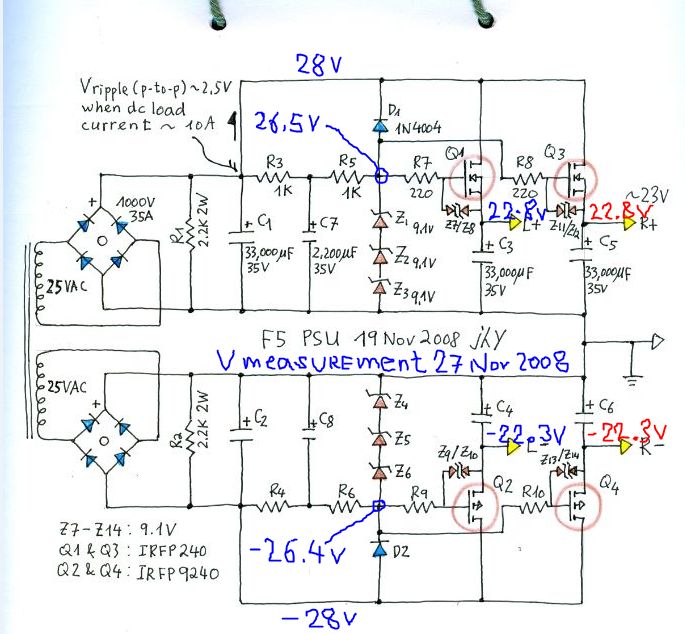 28V
Vripple (p-to-p) ~ 2,5V
when dc load
current ~ 10A
26,5V
D1
1N4004
Q1
Q3
R3
1K
R5
1K
R7
220
R8
220
~23v
+
1000V
35A
R1
2.2K 2W
Z1 9,1V
Z7/Z8
22.8V
L+
Z11/Z12
22.8V
R+
+ C1
33,000µF
35V
+ C7
2,200µF
35V
Z2 9,1V
Z3 9,1V
+ C3
33,000µF
35V
+ C5
33,000µF
35V
25VAC
F5 PSU 19 Nov 2008 jhY
V measUREment 27 Nov 2008
25VAC
+
R2
2.2K 2W
+ C2
+ C8
Z4
Z5
Z6
+ C4
-22.3V
L-
+ C6
-22.3V
R-
Z9/Z10
Z13/Z14
R4
R6
R9
Q2
R10
Q4
-26.4V
D2
Z7-Z14: 9.1V
Q1 & Q3: IRFP240
Q2 & Q4: IRFP9240
-28V